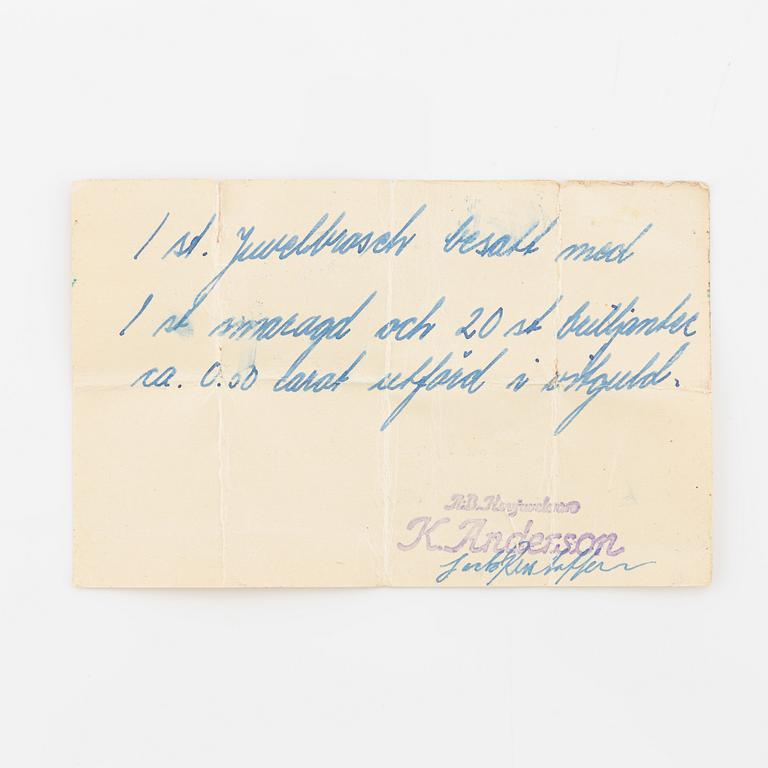 1 st. Juvelbrosch besatt med
1 st smaragd och 20 st briljanter
ca. 0.50 carat utförd i vitguld.
A.B. Hovjuvelerare
K. Anderson